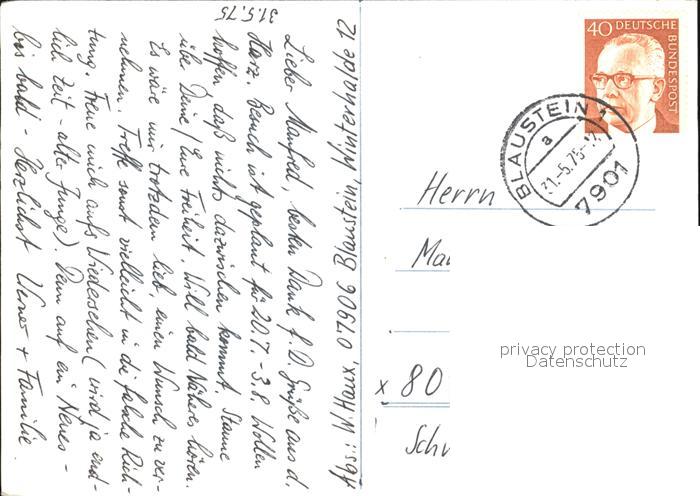 31.5.75
Lieber Manfred, besten Dank f. D. Grüße aus d.
Harz. Besuch ist geplant für 20.7. - 3.8. Wollen
hoffen daß nichts dazwischen kommt. Staune
üb. Deine / Eure Freiheit. Will bald Näheres hören.
Es wäre mir trotzdem lieb, einen Wunsch zu ver-
nehmen. Treffe sonst vielleicht in die falsche Rich-
tung. Freue mich aufs Wiedersehen (wird ja end-
lich Zeit - alter Junge). Denn auf ein Neues -
bis bald - Herzlichst Werner + Familie
Abs.: W. 7906 Blaustein, 12
40 DEUTSCHE
BUNDESPOST
BLAUSTEIN
a
31.-5.75-
7901
Herrn
x 80
privacy protection
Datenschutz